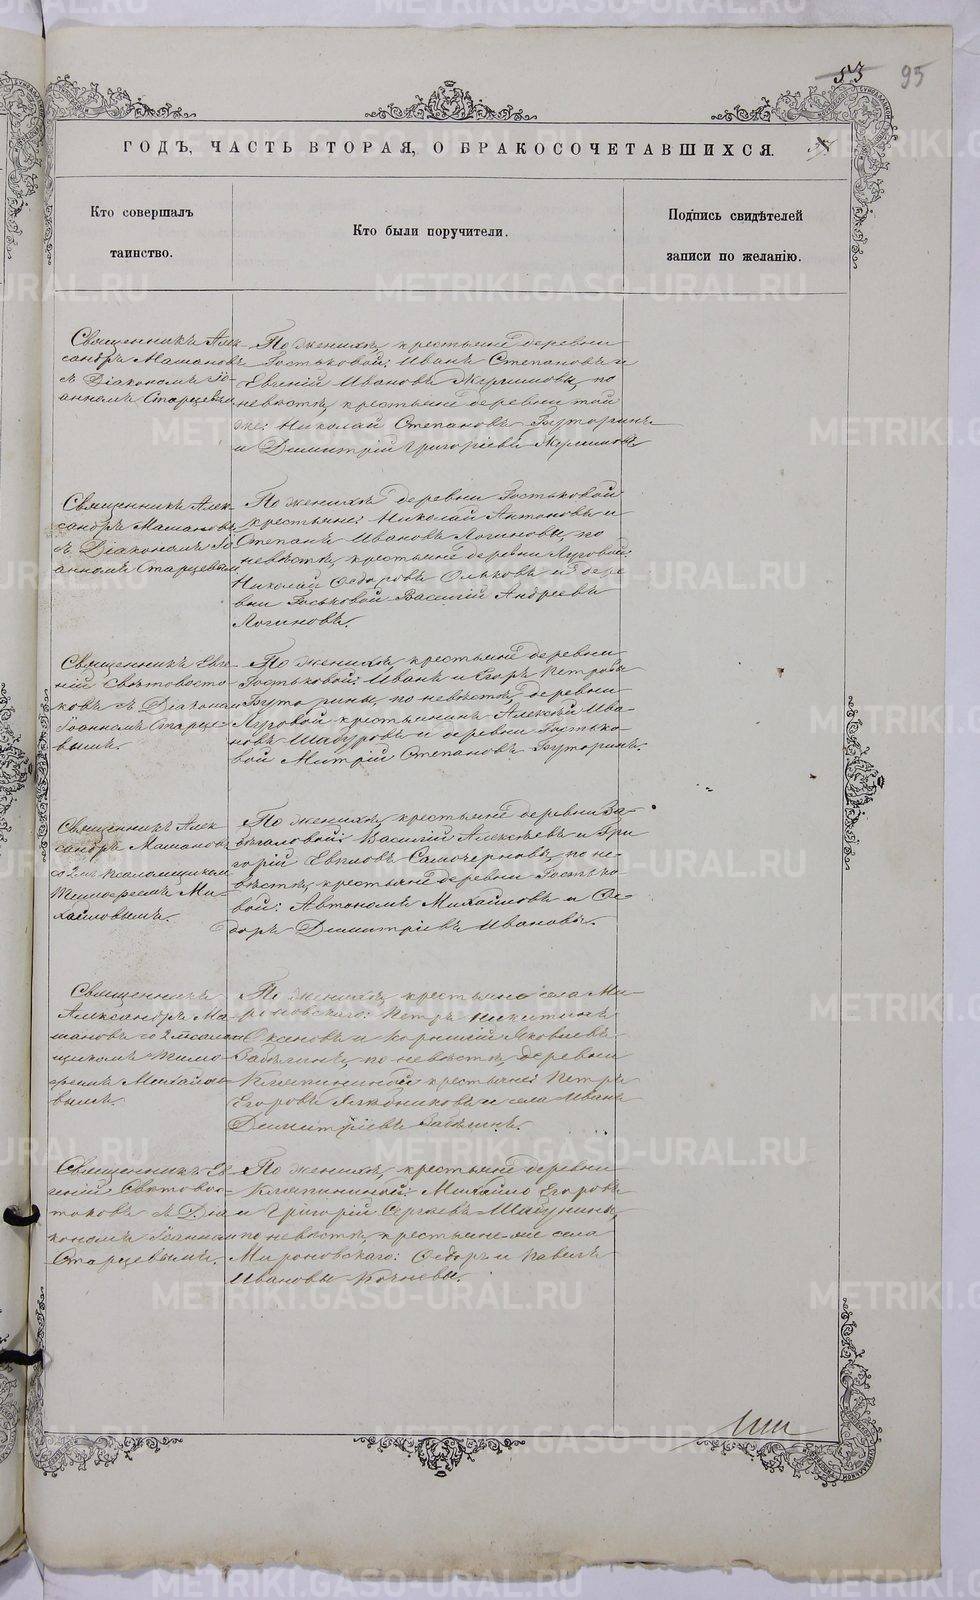 53 95
ГОДЪ, ЧАСТЬ ВТОРАЯ, О БРАКОСОЧЕТАВШИХСЯ.
Кто совершалъ
таинство.
Кто были поручители.
Подпись свидѣтелей
записи по желанію.
Священникъ Алек-
сандръ Машановъ
съ Діакономъ Іо-
анномъ Старцевым
По женихѣ, крестьяне деревни
Гостьковой: Иванъ Степановъ и
Евгеній Ивановъ по
невѣстѣ, крестьяне деревни той
же: Николай Степановъ Буторинъ
и Димитрій Григоріевъ
Священникъ Алек-
сандръ Машановъ
съ Діакономъ Іо-
анномъ Старцевым
По женихѣ деревни Гостьковой
крестьяне: Николай Антоновъ и
Степанъ Ивановъ Логиновы, по
невѣстѣ, крестьяне деревни Луговой:
Николай Ѳедоровъ Ольковъ и дере-
вни Госьковой Василій Андреевъ
Логиновъ.
Священникъ Евге-
ній Свѣтовосто-
ковъ съ Діаконом
Іоанномъ Старце-
вымъ.
По женихѣ, крестьяне деревни
Гостьковой: Иванъ и Егоръ Петровы
Буторины, по невѣстѣ, деревни
Луговой крестьянинъ Алексѣй Ива-
новъ Шабуровъ и деревни Гостько-
вой Митрій Степановъ Буторинъ.
Священникъ Алек
сандръ Машановъ
со 2мъ Псаломщиком
Тимоѳеемъ Ми-
хайловымъ.
По женихѣ, крестьяне деревни За-
бѣгаловой: Василій Алексѣевъ и Гри-
горій Евпловъ Самочерновы, по не-
вѣстѣ, крестьяне деревни Гостько-
вой: Автономъ Михайловъ и Ѳе-
доръ Димитріевъ Ивановы.
Священникъ
Александръ Ма-
шановъ со 2 Псалом
щикомъ Тимо-
ѳеемъ Михайло-
вымъ.
По женихѣ, крестьяне села Ми-
роновскаго: Петръ Никитинъ
Оксеновъ и Корнилій Яковлевъ
Забѣлинъ, по невѣстѣ, деревни
Кляпининой крестьяне: Петръ
Егоровъ и села Иванъ
Димитріевъ Забѣлинъ.
Священникъ Ев
геній Свѣтовос-
токовъ съ Діа-
кономъ Іоанном
Старцевымъ.
По женихѣ, крестьяне деревни
Кляпининой: Михайло Егоровъ
и Григорій Сергѣевъ Шабунины,
по невѣстѣ, крестьяне-же села
Мироновскаго: Ѳедоръ и Павелъ
Ивановы Кочневы.
METRIKI.GASO-URAL.RU